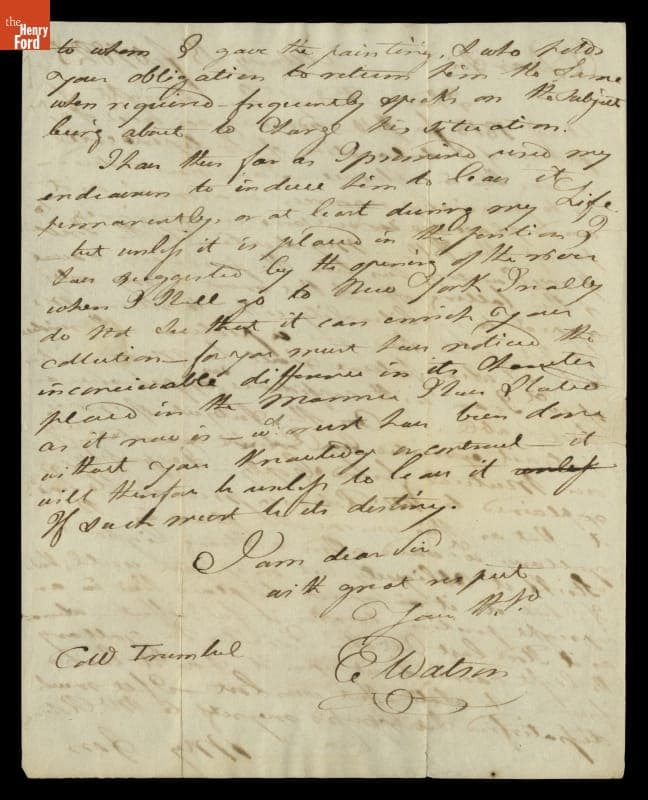 the
Henry
Ford
to whom I gave the painting, & who holds
your obligation to return him the Same
when required - frequently speaks on the subject
being about to Change his situation.
I have thus far as I promised used my
endeavors to induce him to leave it
permanently, or at least during my Life.
but unless it is placed in the position I
have suggested by the opening of the river
when I shall go to New York I really
do not see that it can enrich your
collection - for you must have noticed the
inconceivable difference in its Character
placed in the manner I have Stated
as it now is - wd. must have been done
without your Knowledge or contreul - it
will therefore be useless to leave it unless
If such must be its destiny.
I am dear Sir
with great respect
Your
E Watson
Coll Trumbul